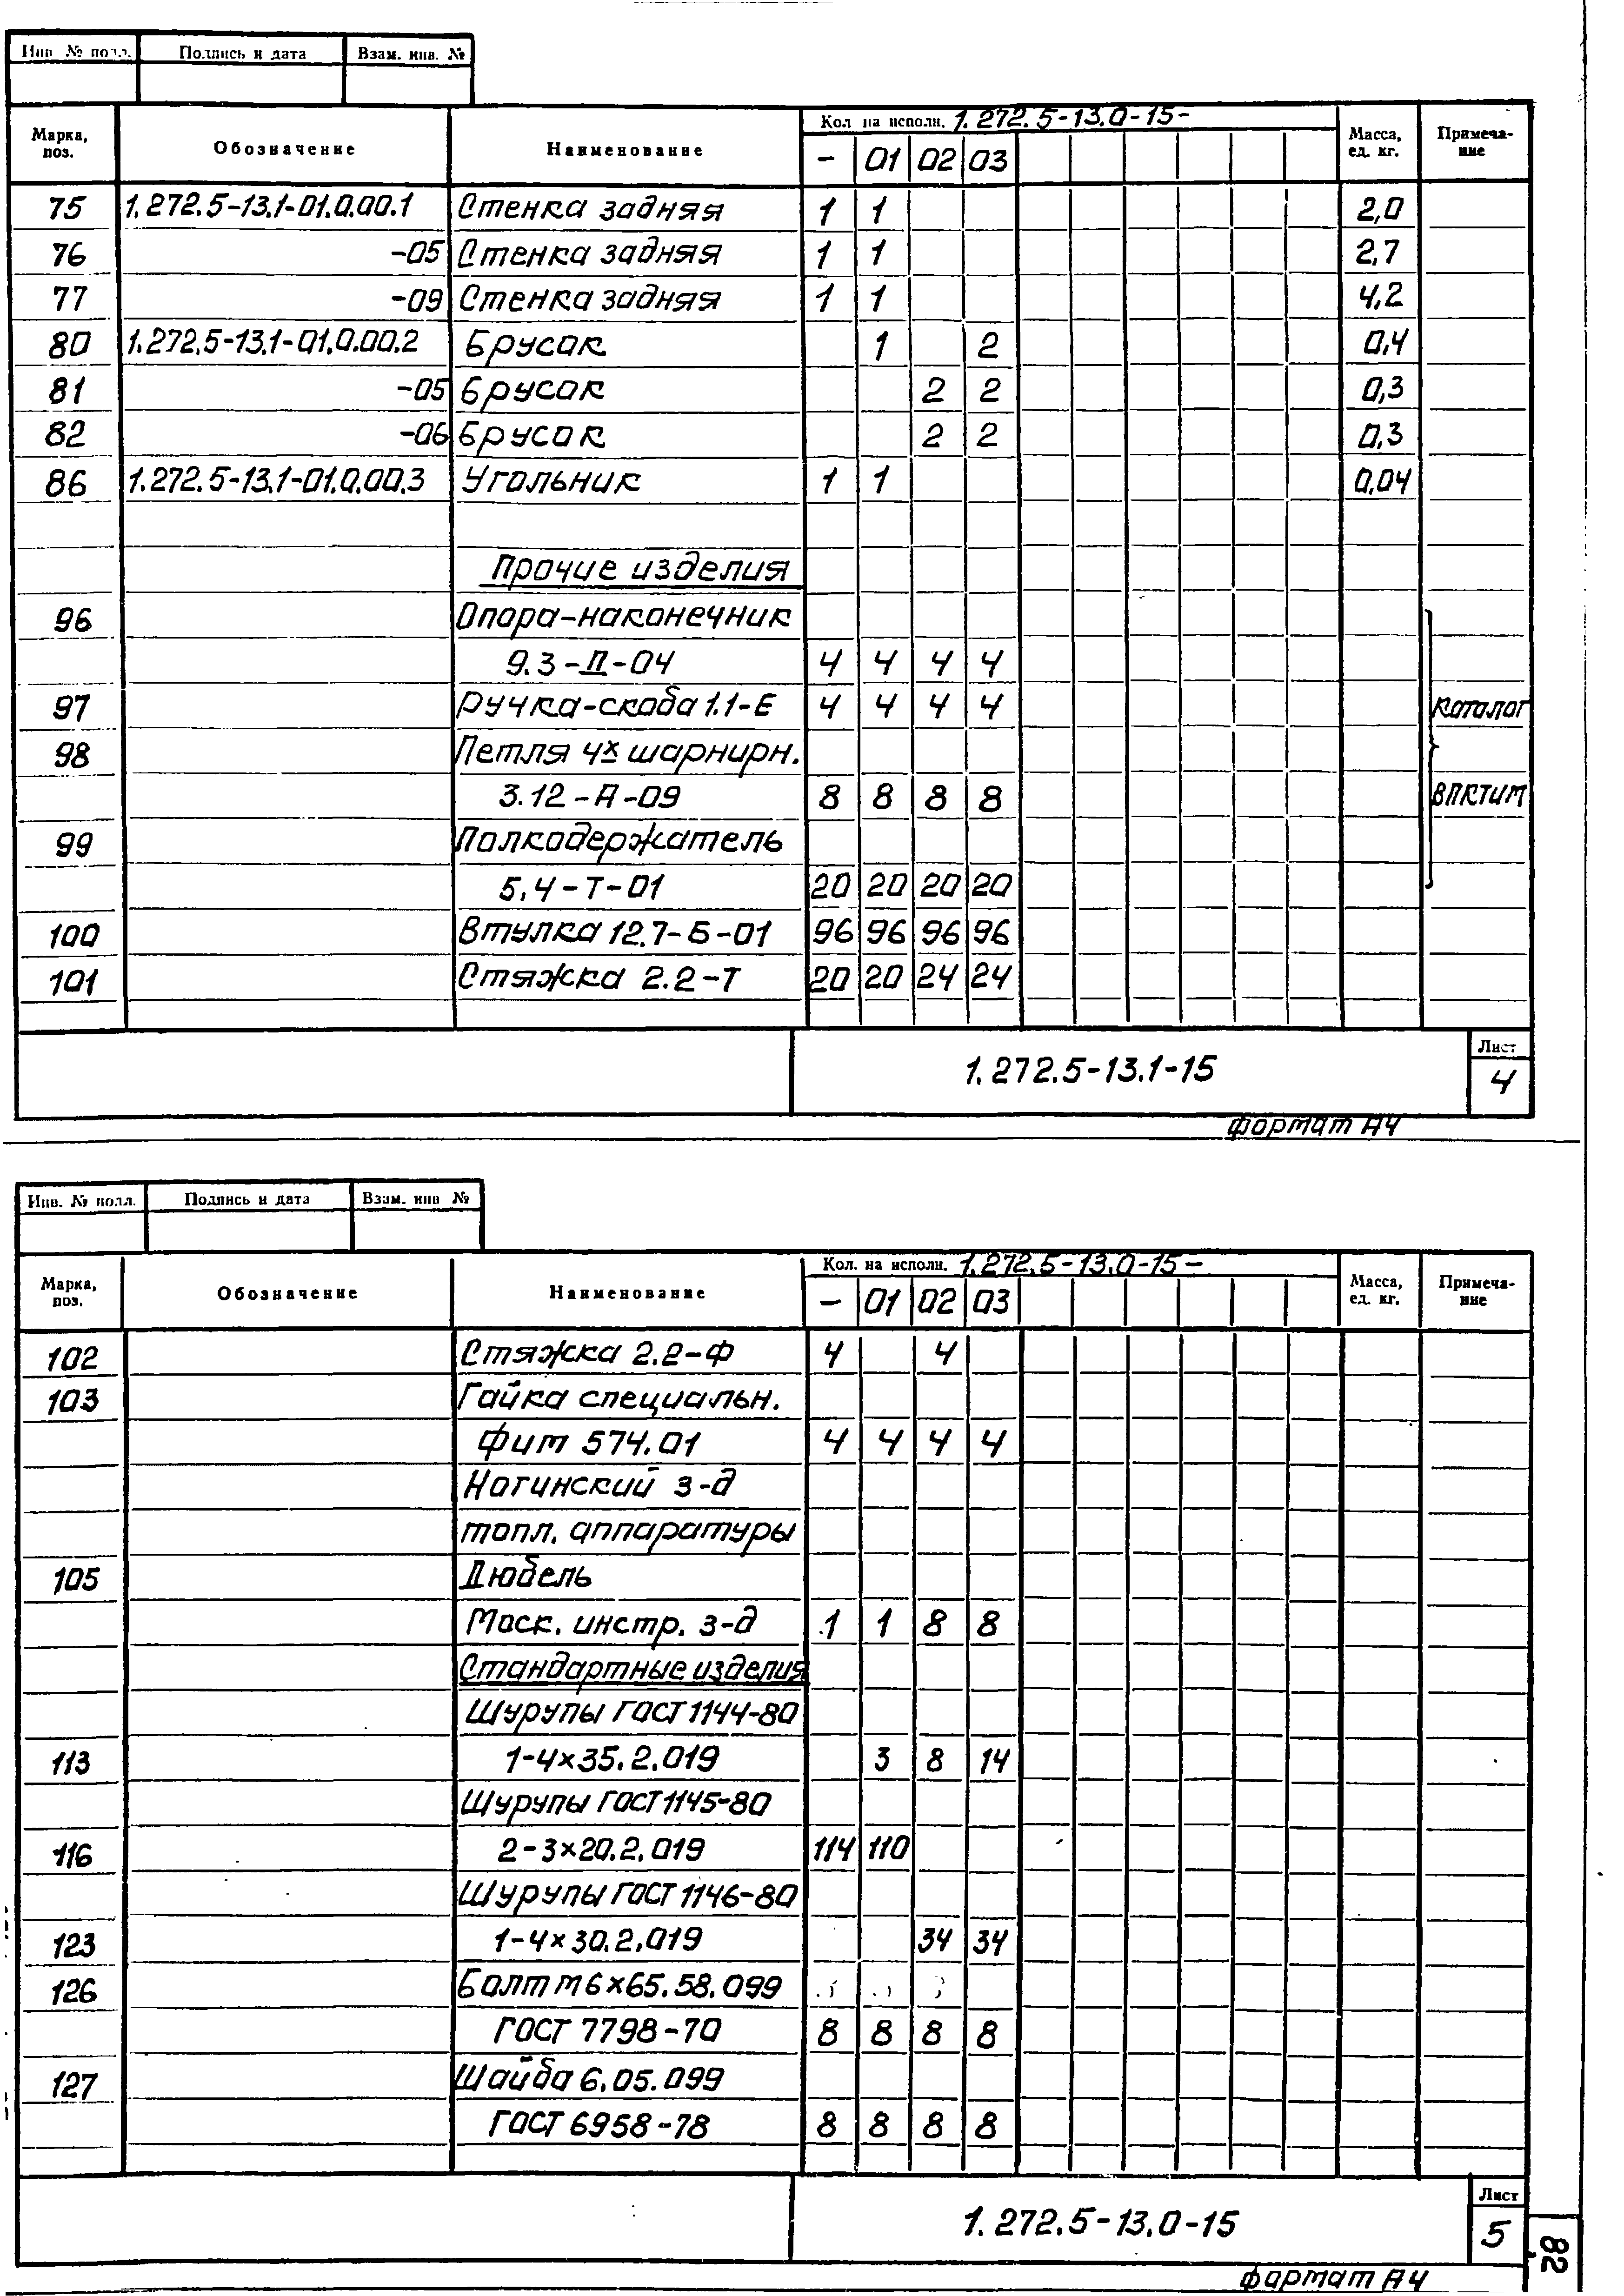 Инв. № подл. Подпись и дата Взам. инв. №
Марка, поз. Обозначение Наименование Кол на исполн. 1.272.5-13.0-15- Масса, ед. кг. Примечание
- 01 02 03
75 1.272.5-13.1-01.0.00.1 Стенка задняя 1 1 2,0
76 -05 Стенка задняя 1 1 2,7
77 -09 Стенка задняя 1 1 4,2
80 1.272.5-13.1-01.0.00.2 Брусок 1 2 0,4
81 -05 Брусок 2 2 0,3
82 -06 Брусок 2 2 0,3
86 1.272.5-13.1-01.0.00.3 Угольник 1 1 0,04
Прочие изделия
96 Опора-наконечник
9.3-П-04 4 4 4 4
97 Ручка-скоба 1.1-Е 4 4 4 4 каталог
98 Петля 4х шарнирн.
3.12-А-09 8 8 8 8 ВПКТИМ
99 Полкодержатель
5.4-Т-01 20 20 20 20
100 Втулка 12.7-Б-01 96 96 96 96
101 Стяжка 2.2-Т 20 20 24 24
1.272.5-13.1-15 Лист 4
формат А4
Инв. № подл. Подпись и дата Взам. инв №
Марка, поз. Обозначение Наименование Кол. на исполн. 1.272.5-13.0-15- Масса, ед. кг. Примечание
- 01 02 03
102 Стяжка 2.2-Ф 4 4
103 Гайка специальн.
фит 574.01 4 4 4 4
Ногинский з-д
топл. аппаратуры
105 Дюбель
Моск. инстр. з-д 1 1 8 8
Стандартные изделия
Шурупы ГОСТ 1144-80
113 1-4×35.2.019 3 8 14
Шурупы ГОСТ 1145-80
116 2-3×20.2.019 114 110
Шурупы ГОСТ 1146-80
123 1-4×30.2.019 34 34
126 Болт М6×65.58.099
ГОСТ 7798-70 8 8 8 8
127 Шайба 6.05.099
ГОСТ 6958-78 8 8 8 8
1.272.5-13.0-15 Лист 5
82
формат А4